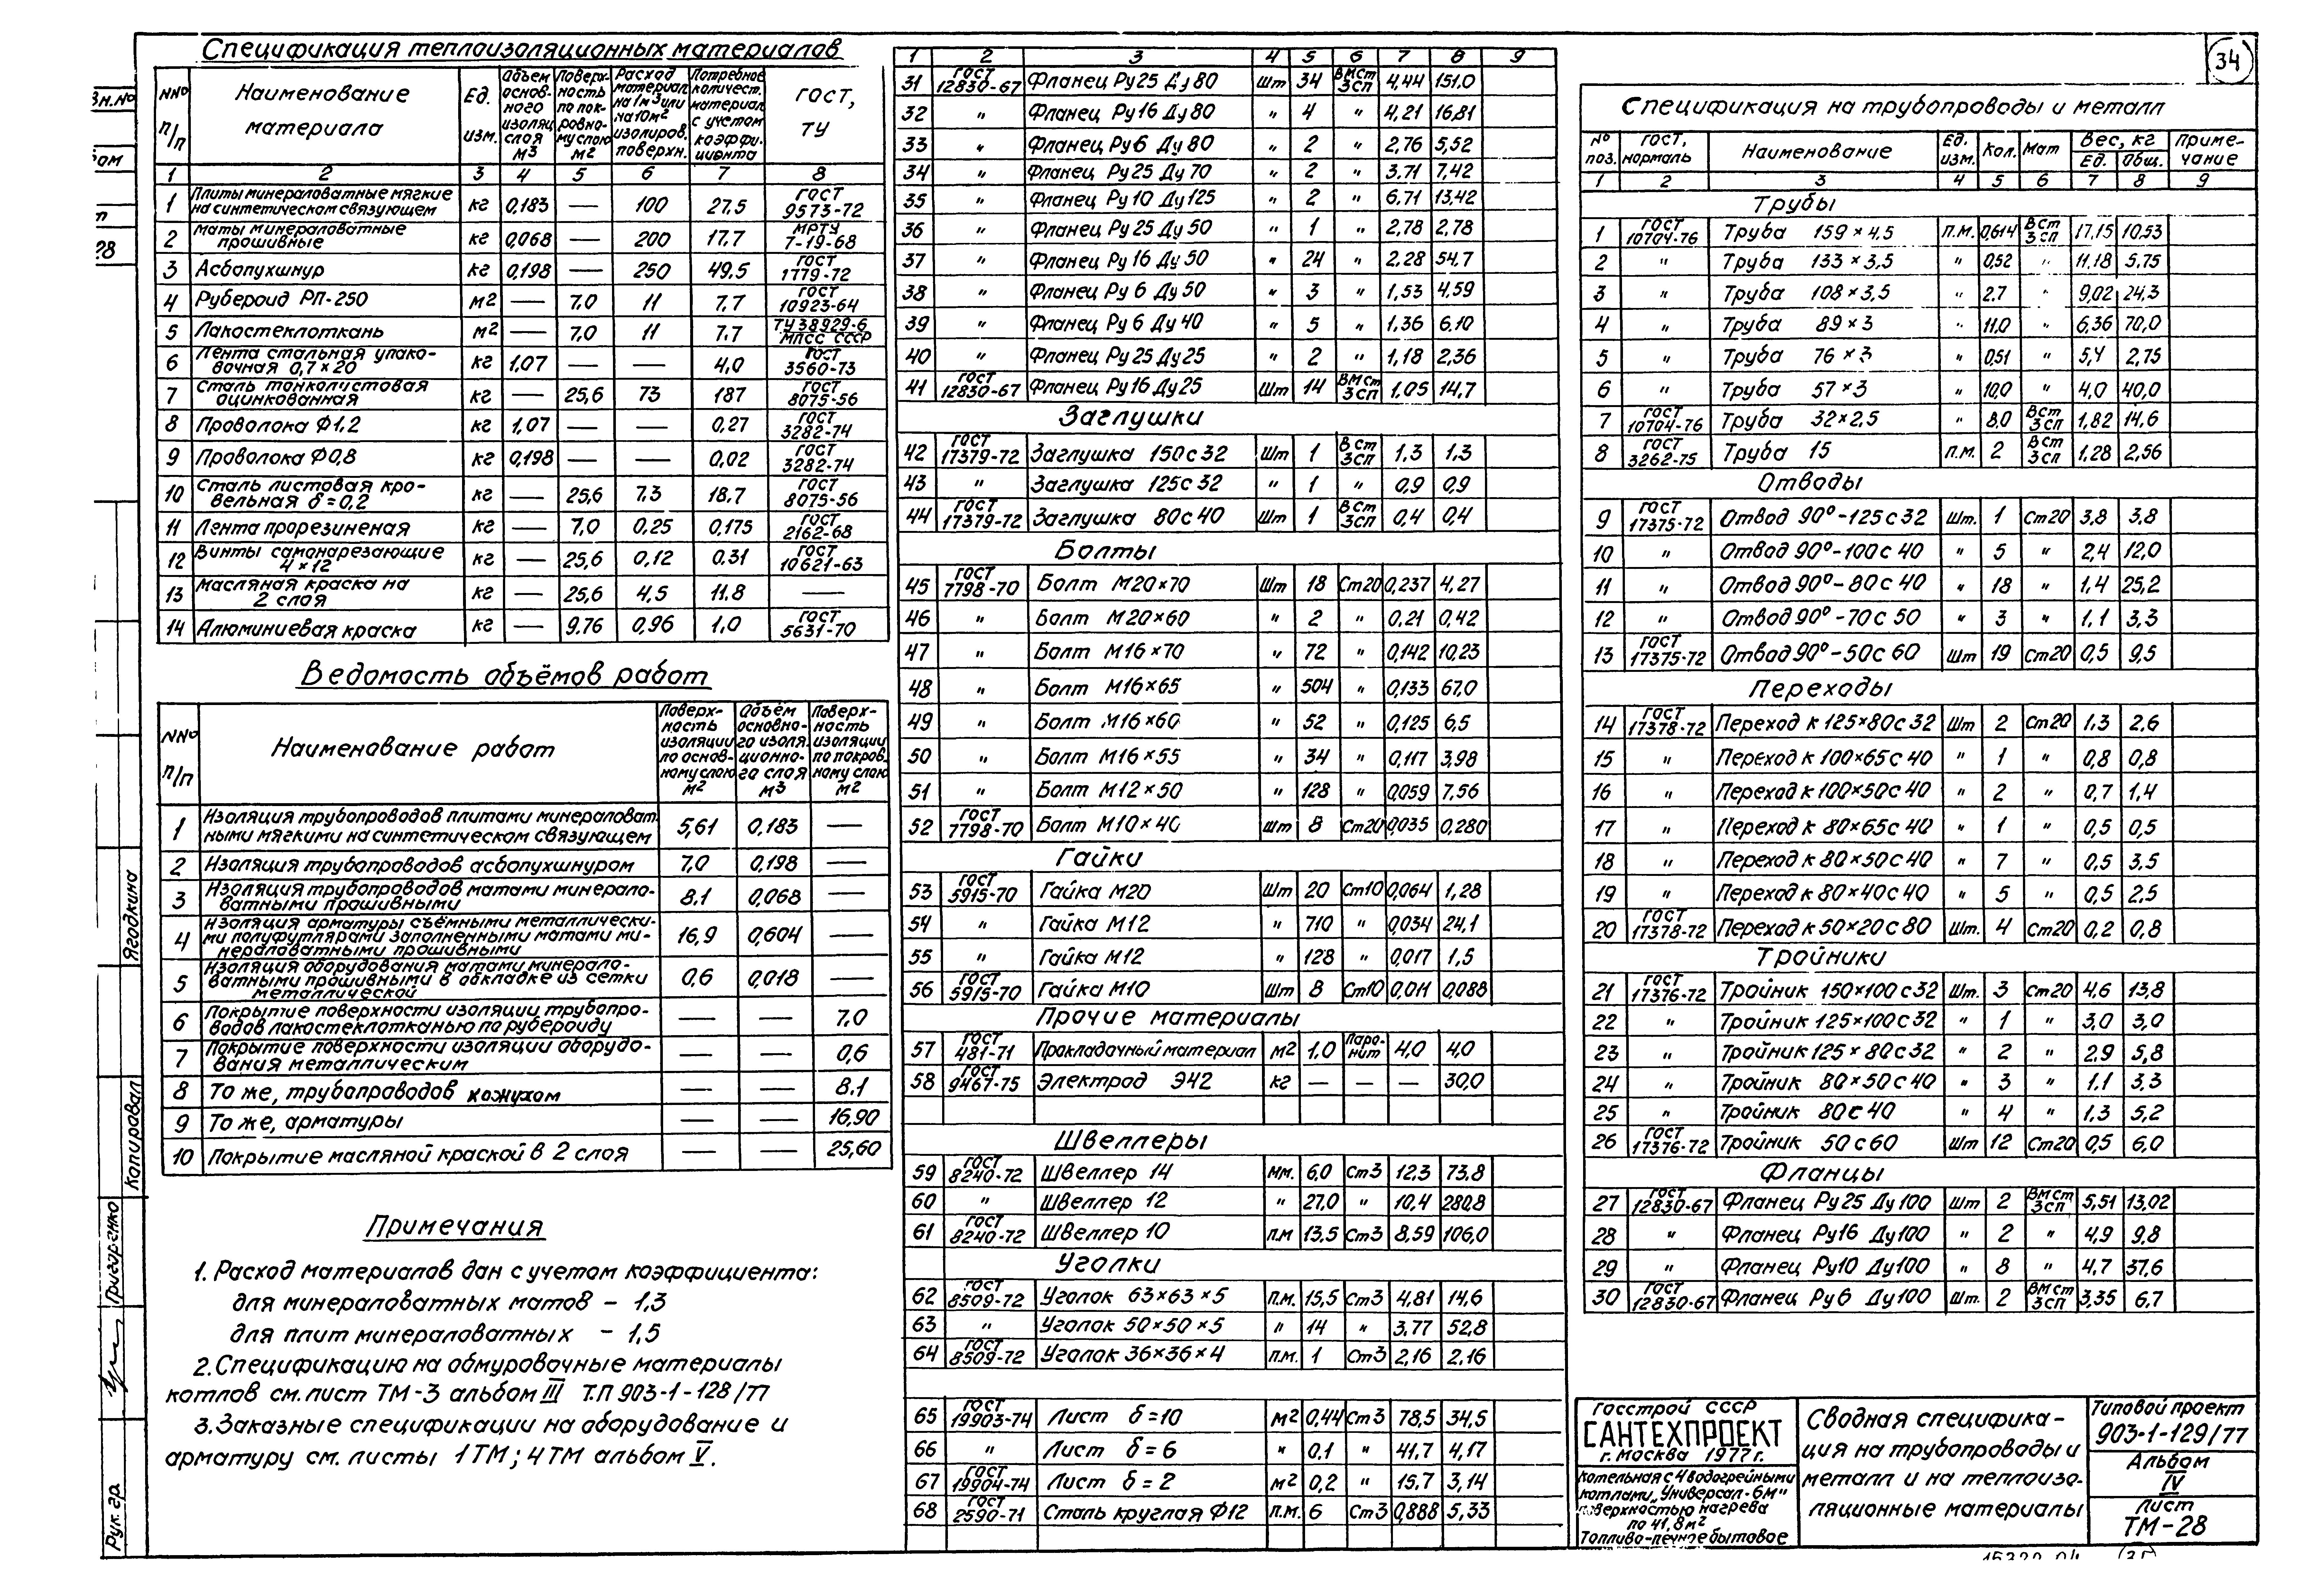 34
Спецификация теплоизоляционных материалов
NNº п/п | Наименование материала | Ед. изм. | Объем основного изоляц слоя м3 | Поверхность по покровному слою м2 | Расход материал на 1м3 или на 10м2 изолиров. поверхн. | Потребное количест. материал с учетом коэффициента | ГОСТ, ТУ
1 | 2 | 3 | 4 | 5 | 6 | 7 | 8
1 | Плиты минераловатные мягкие на синтетическом связующем | кг | 0,183 | — | 100 | 27,5 | ГОСТ 9573-72
2 | Маты минераловатные прошивные | кг | 0,068 | — | 200 | 17,7 | МРТУ 7-19-68
3 | Асбопухшнур | кг | 0,198 | — | 250 | 49,5 | ГОСТ 1779-72
4 | Рубероид РП-250 | м2 | — | 7,0 | 11 | 7,7 | ГОСТ 10923-64
5 | Лакостеклоткань | м2 | — | 7,0 | 11 | 7,7 | ТУ 38929-6 МПСС СССР
6 | Лента стальная упаковочная 0,7×20 | кг | 1,07 | — | — | 4,0 | ГОСТ 3560-73
7 | Сталь тонколистовая оцинкованная | кг | — | 25,6 | 73 | 187 | ГОСТ 8075-56
8 | Проволока Ф1,2 | кг | 1,07 | — | — | 0,27 | ГОСТ 3282-74
9 | Проволока Ф0,8 | кг | 0,198 | — | — | 0,02 | ГОСТ 3282-74
10 | Сталь листовая кровельная δ=0,2 | кг | — | 25,6 | 7.3 | 18,7 | ГОСТ 8075-56
11 | Лента прорезиненая | кг | — | 7,0 | 0,25 | 0,175 | ГОСТ 2162-68
12 | Винты самонарезающие 4×12 | кг | — | 25,6 | 0,12 | 0.31 | ГОСТ 10621-63
13 | Масляная краска на 2 слоя | кг | — | 25,6 | 4,5 | 11.8 | —
14 | Алюминиевая краска | кг | — | 9,76 | 0,96 | 1,0 | ГОСТ 5631-70
Ведомость объёмов работ
NNº п/п | Наименование работ | Поверхность изоляции по основному слою м2 | Объём основного изоляционного слоя м3 | Поверхность изоляции по покровному слою м2
1 | Изоляция трубопроводов плитами минераловатными мягкими на синтетическом связующем | 5,61 | 0,183 | —
2 | Изоляция трубопроводов асбопухшнуром | 7,0 | 0,198 | —
3 | Изоляция трубопроводов матами минераловатными прошивными | 8.1 | 0,068 | —
4 | Изоляция арматуры съёмными металлическими полуфутлярами заполненными матами минераловатными прошивными | 16,9 | 0,604 | —
5 | Изоляция оборудования матами минераловатными прошивными в обкладке из сетки металлической | 0,6 | 0,018 | —
6 | Покрытие поверхности изоляции трубопроводов лакостеклотканью по рубероиду | — | — | 7.0
7 | Покрытие поверхности изоляции оборудования металлическим | — | — | 0,6
8 | То же, трубопроводов кожухом | — | — | 8.1
9 | То же, арматуры | — | — | 16,90
10 | Покрытие масляной краской в 2 слоя | — | — | 25,60
Примечания
1. Расход материалов дан с учетом коэффициента:
для минераловатных матов – 1,3
для плит минераловатных – 1,5
2. Спецификацию на обмуровочные материалы
котлов см. лист ТМ-3 альбом III Т.П 903-1-128/77
3. Заказные спецификации на оборудование и
арматуру см. листы 1ТМ; 4ТМ альбом V.
1 | 2 | 3 | 4 | 5 | 6 | 7 | 8 | 9
31 | ГОСТ 12830-67 | Фланец Ру25 Ду80 | шт | 34 | ВМст 3сп | 4,44 | 151.0
32 | " | Фланец Ру16 Ду80 | " | 4 | " | 4,21 | 16,81
33 | " | Фланец Ру6 Ду80 | " | 2 | " | 2,76 | 5,52
34 | " | Фланец Ру25 Ду70 | " | 2 | " | 3.71 | 7,42
35 | " | Фланец Ру10 Ду125 | " | 2 | " | 6.71 | 13,42
36 | " | Фланец Ру25 Ду50 | " | 1 | " | 2,78 | 2,78
37 | " | Фланец Ру16 Ду50 | " | 24 | " | 2.28 | 54.7
38 | " | Фланец Ру6 Ду50 | " | 3 | " | 1,53 | 4,59
39 | " | Фланец Ру6 Ду40 | " | 5 | " | 1,36 | 6,10
40 | " | Фланец Ру25 Ду25 | " | 2 | " | 1,18 | 2,36
41 | ГОСТ 12830-67 | Фланец Ру16 Ду25 | шт | 14 | ВМст 3сп | 1,05 | 14,7
Заглушки
42 | ГОСТ 17379-72 | Заглушка 150с32 | шт | 1 | Вст 3сп | 1,3 | 1,3
43 | " | Заглушка 125с32 | " | 1 | " | 0,9 | 0,9
44 | ГОСТ 17379-72 | Заглушка 80с40 | шт | 1 | Вст 3сп | 0,4 | 0,4
Болты
45 | ГОСТ 7798-70 | Болт М20×70 | шт | 18 | Ст20 | 0,237 | 4,27
46 | " | Болт М20×60 | " | 2 | " | 0,21 | 0,42
47 | " | Болт М16×70 | " | 72 | " | 0,142 | 10,23
48 | " | Болт М16×65 | " | 504 | " | 0,133 | 67,0
49 | " | Болт М16×60 | " | 52 | " | 0,125 | 6,5
50 | " | Болт М16×55 | " | 34 | " | 0,117 | 3,98
51 | " | Болт М12×50 | " | 128 | " | 0,059 | 7,56
52 | ГОСТ 7798-70 | Болт М10×40 | шт | 8 | Ст20 | 0,035 | 0,280
Гайки
53 | ГОСТ 5915-70 | Гайка М20 | шт | 20 | Ст10 | 0,064 | 1,28
54 | " | Гайка М12 | " | 710 | " | 0,034 | 24,1
55 | " | Гайка М12 | " | 128 | " | 0,017 | 1,5
56 | ГОСТ 5915-70 | Гайка М10 | шт | 8 | Ст10 | 0,011 | 0,088
Прочие материалы
57 | ГОСТ 481-71 | Прокладочный материал | м2 | 1,0 | Паронит | 4,0 | 4,0
58 | ГОСТ 9467-75 | Электрод Э42 | кг | — | — | — | 30,0
Швеллеры
59 | ГОСТ 8240-72 | Швеллер 14 | мм. | 6,0 | Ст3 | 12,3 | 73,8
60 | " | Швеллер 12 | " | 27,0 | " | 10,4 | 280,8
61 | ГОСТ 8240-72 | Швеллер 10 | п.м | 13,5 | Ст3 | 8,59 | 106,0
Уголки
62 | ГОСТ 8509-72 | Уголок 63×63×5 | п.м. | 15,5 | Ст3 | 4,81 | 14,6
63 | " | Уголок 50×50×5 | " | 14 | " | 3.77 | 52,8
64 | ГОСТ 8509-72 | Уголок 36×36×4 | п.м. | 1 | Ст3 | 2,16 | 2.16
65 | ГОСТ 19903-74 | Лист δ=10 | м2 | 0,44 | Ст3 | 78,5 | 34,5
66 | " | Лист δ=6 | " | 0,1 | " | 41,7 | 4,17
67 | ГОСТ 19904-74 | Лист δ=2 | м2 | 0,2 | " | 15,7 | 3,14
68 | ГОСТ 2590-71 | Сталь круглая Ф12 | п.м. | 6 | Ст3 | 0,888 | 5,33
Спецификация на трубопроводы и металл
Nº поз. | ГОСТ, нормаль | Наименование | Ед. изм. | Кол. | Мат | Вес, кг Ед. | Общ. | Примечание
1 | 2 | 3 | 4 | 5 | 6 | 7 | 8 | 9
Трубы
1 | ГОСТ 10704-76 | Труба 159×4,5 | п.м. | 0,614 | Вст 3сп | 17,15 | 10,53
2 | " | Труба 133×3,5 | " | 0,52 | " | 11,18 | 5,75
3 | " | Труба 108×3,5 | " | 2,7 | " | 9,02 | 24,3
4 | " | Труба 89×3 | " | 11,0 | " | 6,36 | 70,0
5 | " | Труба 76×3 | " | 0,51 | " | 5,4 | 2,75
6 | " | Труба 57×3 | " | 10,0 | " | 4,0 | 40,0
7 | ГОСТ 10704-76 | Труба 32×2,5 | " | 8,0 | Вст 3сп | 1,82 | 14,6
8 | ГОСТ 3262-75 | Труба 15 | п.м. | 2 | Вст 3сп | 1,28 | 2,56
Отводы
9 | ГОСТ 17375-72 | Отвод 90º-125с32 | шт. | 1 | Ст20 | 3,8 | 3,8
10 | " | Отвод 90º-100с40 | " | 5 | " | 2,4 | 12,0
11 | " | Отвод 90º-80с40 | " | 18 | " | 1,4 | 25,2
12 | " | Отвод 90º-70с50 | " | 3 | " | 1,1 | 3,3
13 | ГОСТ 17375-72 | Отвод 90º-50с60 | шт | 19 | Ст20 | 0,5 | 9,5
Переходы
14 | ГОСТ 17378-72 | Переход к 125×80с32 | шт | 2 | Ст20 | 1,3 | 2,6
15 | " | Переход к 100×65с40 | " | 1 | " | 0,8 | 0,8
16 | " | Переход к 100×50с40 | " | 2 | " | 0,7 | 1,4
17 | " | Переход к 80×65с40 | " | 1 | " | 0,5 | 0,5
18 | " | Переход к 80×50с40 | " | 7 | " | 0,5 | 3,5
19 | " | Переход к 80×40с40 | " | 5 | " | 0,5 | 2,5
20 | ГОСТ 17378-72 | Переход к 50×20с80 | шт. | 4 | Ст20 | 0,2 | 0,8
Тройники
21 | ГОСТ 17376-72 | Тройник 150×100с32 | шт. | 3 | Ст20 | 4,6 | 13,8
22 | " | Тройник 125×100с32 | " | 1 | " | 3,0 | 3,0
23 | " | Тройник 125×80с32 | " | 2 | " | 2,9 | 5,8
24 | " | Тройник 80×50с40 | " | 3 | " | 1,1 | 3,3
25 | " | Тройник 80с40 | " | 4 | " | 1,3 | 5,2
26 | ГОСТ 17376-72 | Тройник 50с60 | шт | 12 | Ст20 | 0,5 | 6,0
Фланцы
27 | ГОСТ 12830-67 | Фланец Ру25 Ду100 | шт | 2 | ВМст 3сп | 5,51 | 13,02
28 | " | Фланец Ру16 Ду100 | " | 2 | " | 4,9 | 9,8
29 | " | Фланец Ру10 Ду100 | " | 8 | " | 4,7 | 37,6
30 | ГОСТ 12830-67 | Фланец Ру6 Ду100 | шт. | 2 | ВМст 3сп | 3,35 | 6,7
Госстрой СССР
САНТЕХПРОЕКТ
г. Москва 1977г.
Котельная с 4 водогрейными
котлами „Универсал-6М"
поверхностью нагрева
по 41,8м2
Топливо-печное бытовое
Сводная специфика-
ция на трубопроводы и
металл и на теплоизо-
ляционные материалы
Типовой проект
903-1-129/77
Альбом
IV
Лист
ТМ-28
Ягодкина
Копировал
Григоренко
Рук. гр.
28